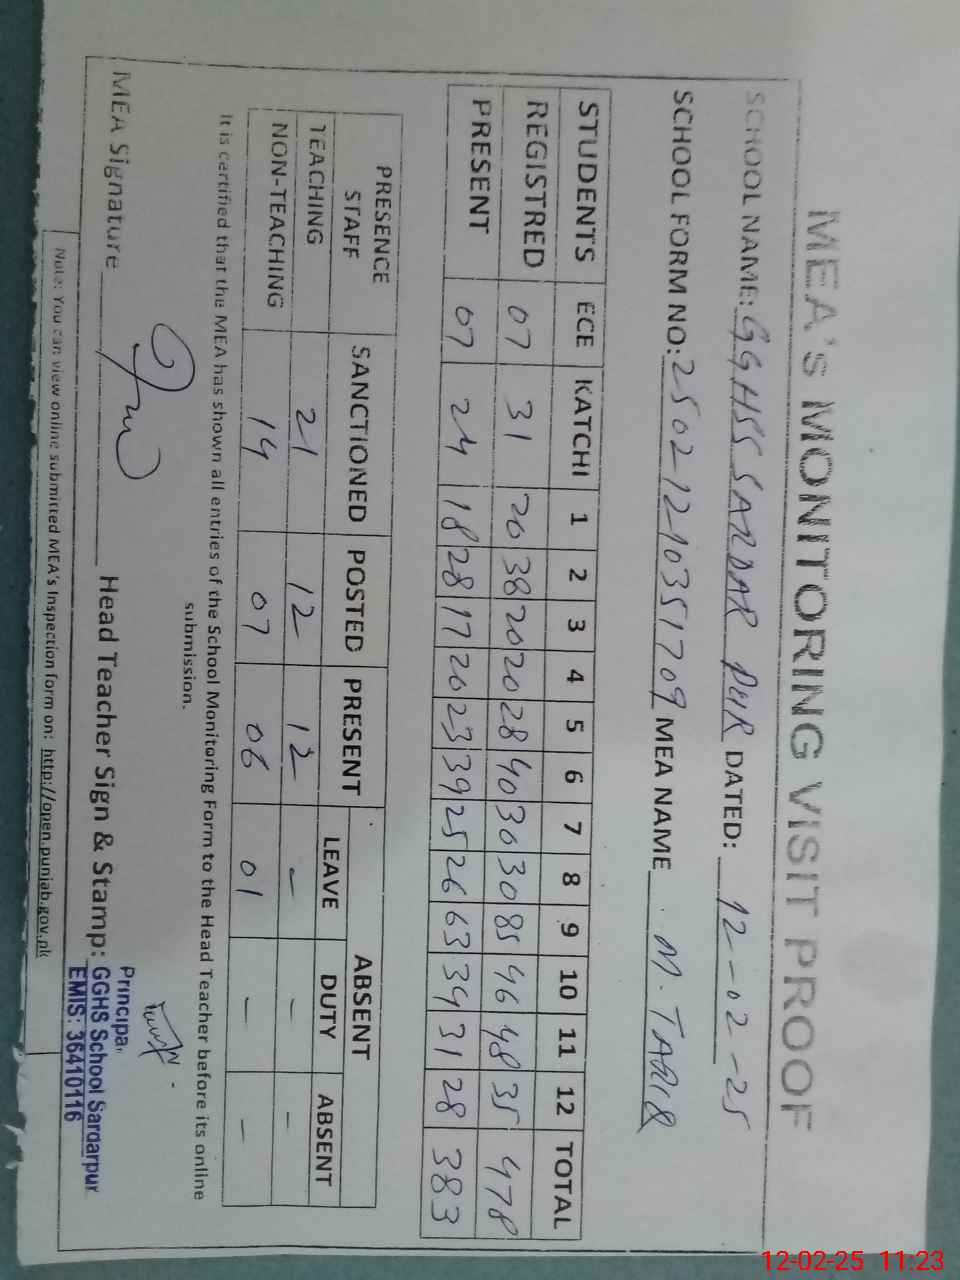 MEA's MONITORING VISIT PROOF
SCHOOL NAME: GGHSS SARDAR PUR DATED: 12-02-25
SCHOOL FORM NO: 25021210351709 MEA NAME M. TARIQ
STUDENTS ECE KATCHI 1 2 3 4 5 6 7 8 9 10 11 12 TOTAL
REGISTRED 07 31 20 38 20 20 28 40 30 30 85 46 48 35 478
PRESENT 07 24 18 28 17 20 23 39 25 26 63 34 31 28 383
PRESENCE STAFF SANCTIONED POSTED PRESENT ABSENT
LEAVE DUTY ABSENT
TEACHING 21 12 12 - - -
NON-TEACHING 14 07 06 01 - -
It is certified that the MEA has shown all entries of the School Monitoring Form to the Head Teacher before its online
submission.
MEA Signature Head Teacher Sign & Stamp:
Principa,
GGHS School Sardarpur
EMIS: 36410116
Note: You can view online submitted MEA's Inspection form on: http://open.punjab.gov.pk
12-02-25 11:23